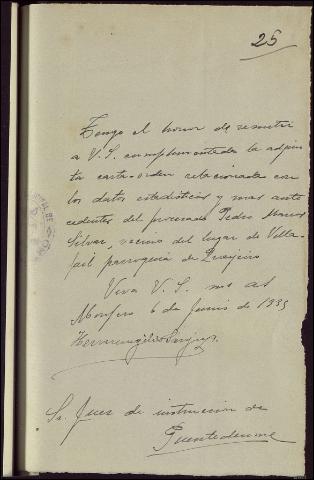 25
Tengo el honor de remitir
a V.S. cumplimentada la adjun
ta carta-orden relacionada con
los datos estadísticos y mas ante
cedentes del procesado Pedro
Silvar, vecino del lugar de Villa
parroquia de
Viva V.S. m.s as
Monfero 6 de Junio de 1935
Hermenegildo
Sr. Juez de instruccion de
Puentedeume